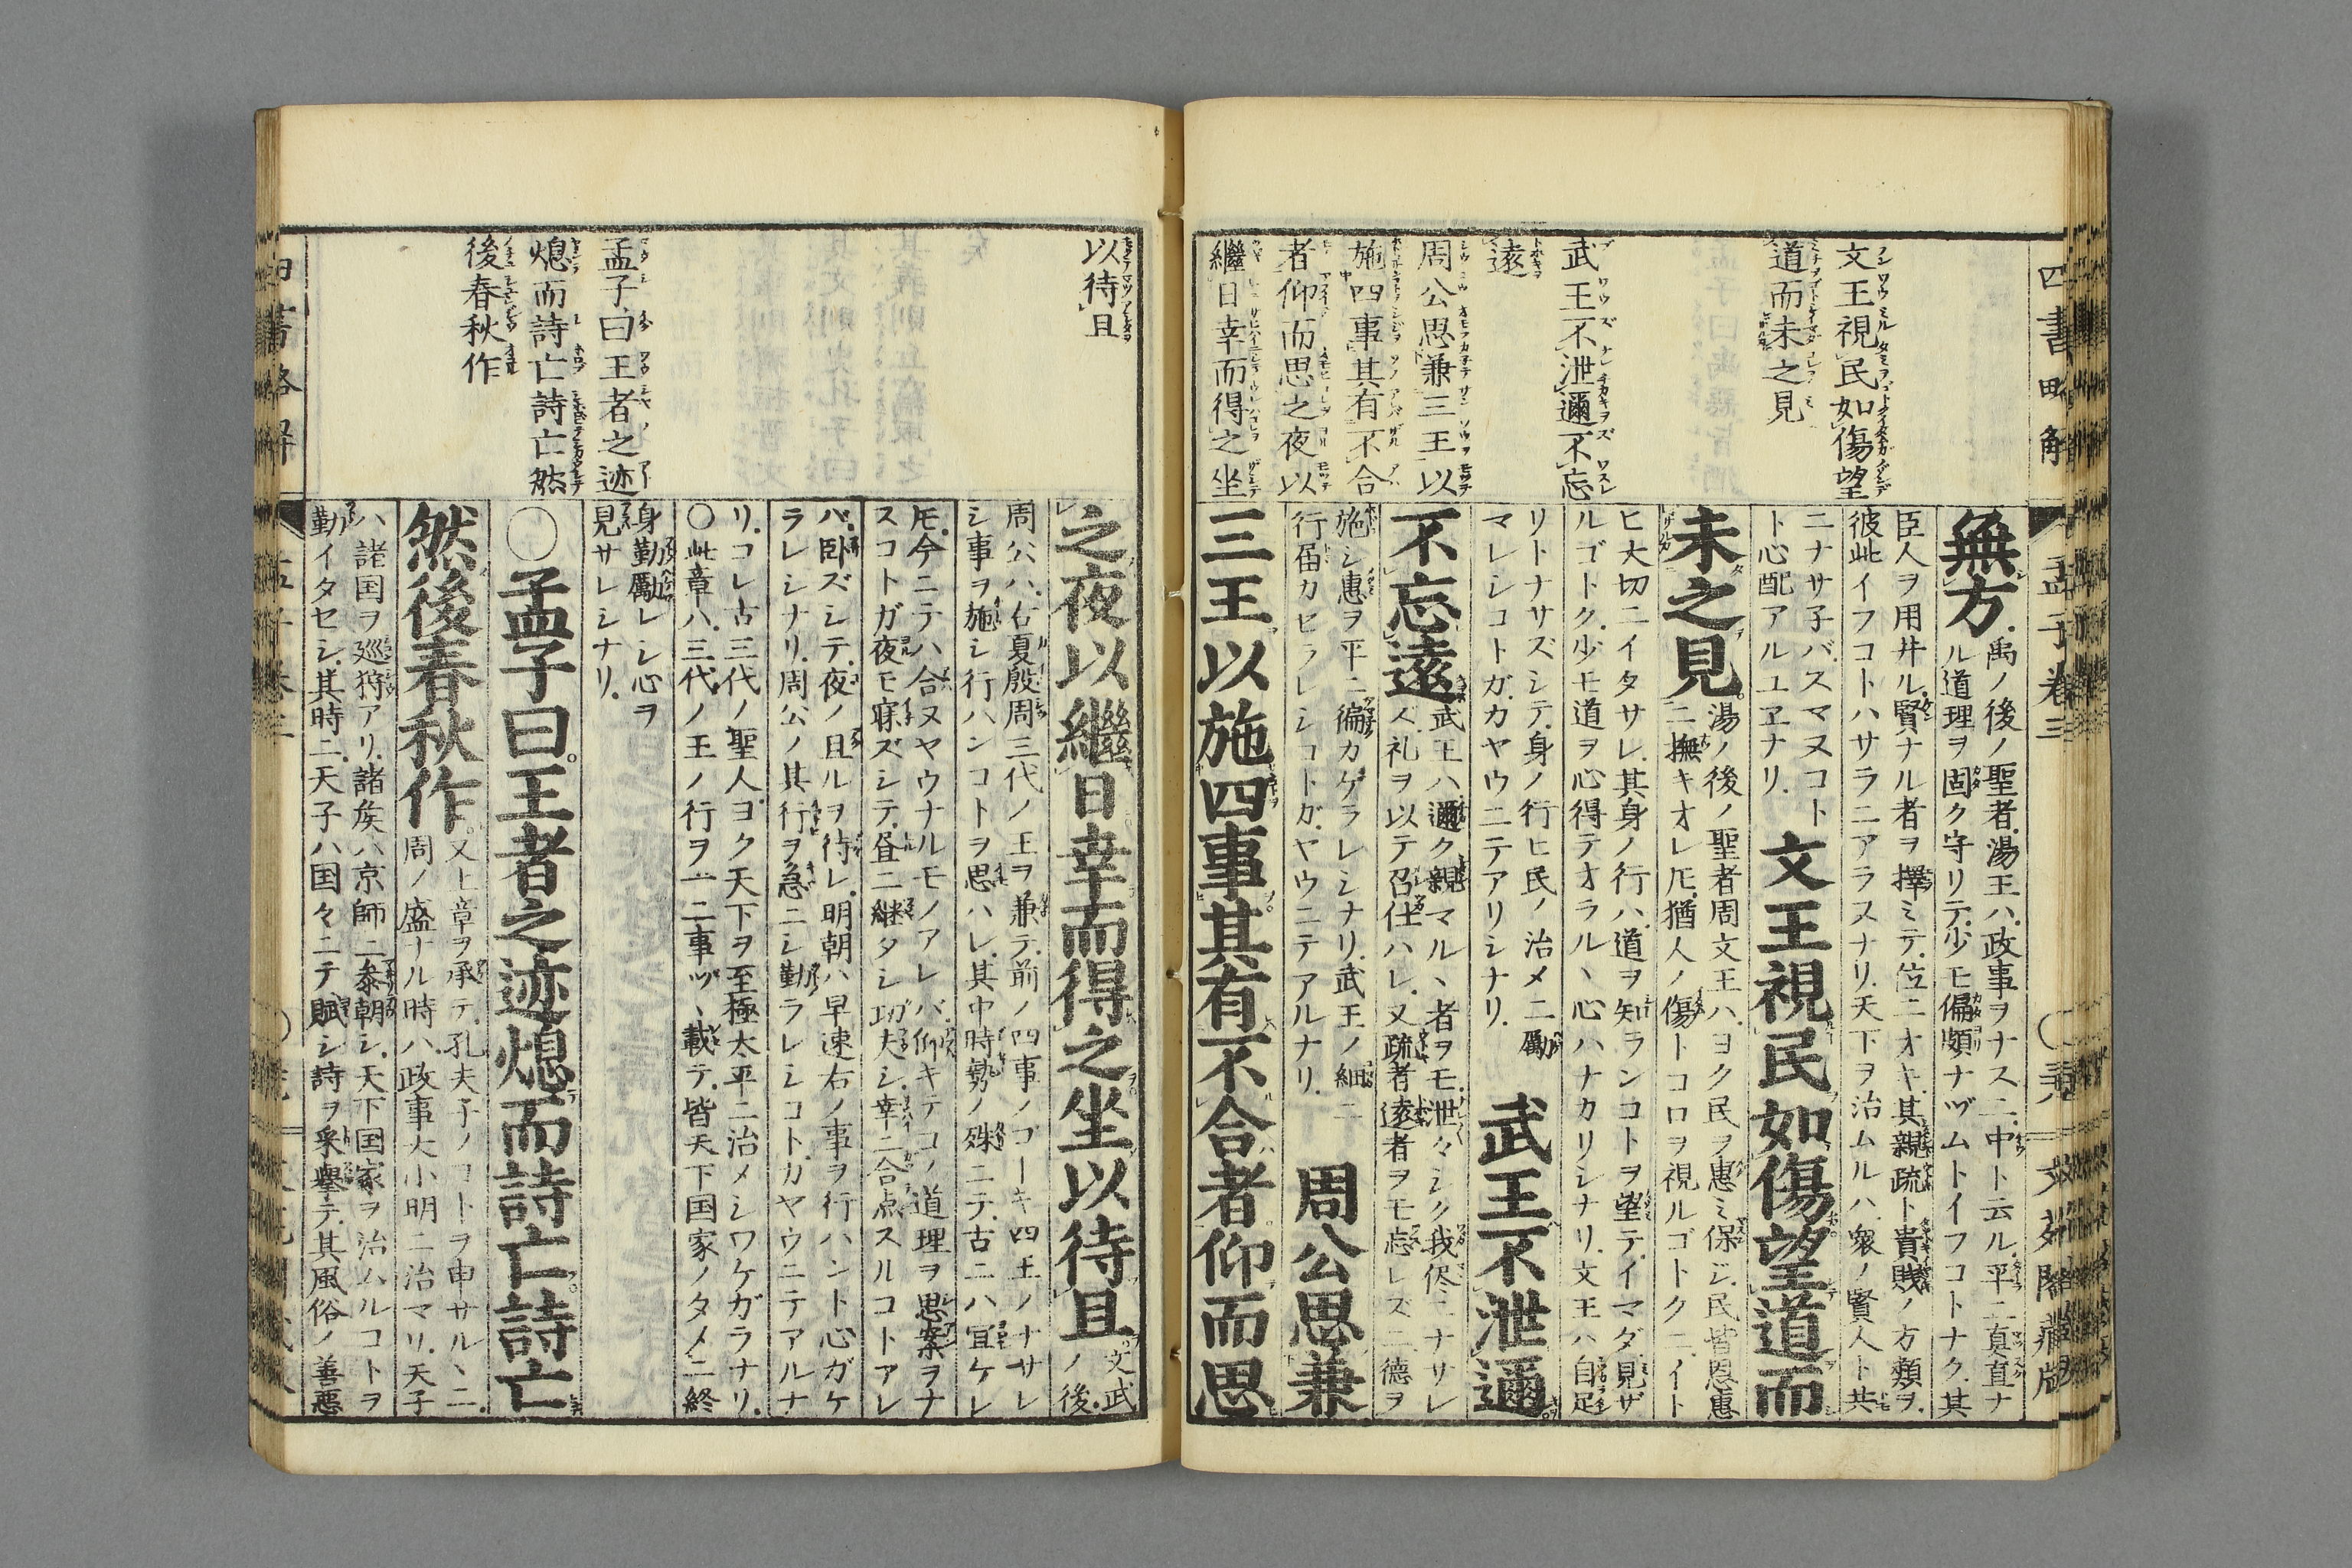 四書略解
孟子卷三
文王視民如傷望
道而未之見
武王不泄邇不忘
遠
周公思兼三王以
施四事其有不合
者仰而思之夜以
繼日幸而得之坐
無方
禹ノ後ノ聖者湯王ハ政事ヲナス二中ト云ル平二真直ナ
ル道理ヲ固ク守リテ少モ偏頗ナヅムトイフコトナク其
臣人ヲ用井ル賢ナル者ヲ擇ミテ位ニオキ其親疏ト貴賎ノ方類ヲ
彼此イフコトハサラニアラヌナリ天下ヲ治ムルハ衆ノ賢人ト共
ニナサ子バスマヌコト
ト心配アルユヱナリ
文王視民如傷望道而
未之見
湯ノ後ノ聖者周文王ハヨク民ヲ惠ミ保ジ民皆恩惠
二撫キオレ𪜈猶人ノ傷トコロヲ視ルゴトクニイト
ヒ大切ニイタサレ其身ノ行ハ道ヲ知ランコトヲ望テイマダ見ザ
ルゴトク少モ道ヲ心得テオラルヽ心ハナカリシナリ文王ハ自足
リトナサズシテ身ノ行ヒ民ノ治メ二勵
マレシコトガカヤウニテアリシナリ
武王不泄邇
不忘遠
武王ハ邇ク親マルヽ者ヲモ泄々シク我侭ニナサレ
ズ礼ヲ以テ召仕ハレ又疏者遠者ヲモ忘レズ二德ヲ
施シ惠ヲ平ニ徧カケラレシナリ武王ノ細二
行届カヒラレシコトガヤウニテアルナリ
周公思兼
三王以施四事其有不合者仰而思
以待旦
孟子曰王者之迹
熄而詩亡詩亡然
後春秋作
之夜以繼日幸而得之坐以待旦
文武
ノ後
周公ハ右夏殷周三代ノ王ヲ兼テ前ノ四事ノゴーキ四王ノナサレ
シ事ヲ施シ行ハンコトヲ思ハレ其中時勢ノ殊ニテ古ニハ宜ケレ
𪜈今ニテハ合ヌヤウナルモノアレバ仰キテコノ道理ヲ思案ヲナ
スコトガ夜モ寐ズシテ昼ニ継タシ功夫シ幸ニ合点スルコトアレ
バ卧ズシテ夜ノ旦ルヲ待レ明朝ハ早速右ノ事ヲ行ハント心ガケ
ラレシナリ周公ノ其行ヲ急ニシ勤ラレシコトカヤウニテアルナ
リコレ古三代ノ聖人ヨク天下ヲ至極太平二治メシワケガラナリ
〇此章ハ三代ノ王ノ行ヲ一二事ヅヽ載テ皆天下国家ノタメニ終
身勤勵レシ心ヲ
見サレシナリ
〇孟子曰王者之迹熄而詩亡詩亡
然後春秋作
又上章ヲ承テ孔夫子ノコトヲ申サルヽ二
周ノ盛ナル時ハ政事大小明二治マリ天子
ハ諸国ヲ廵狩アリ諸矦ハ京師ニ叅朝シ天下国家ヲ治ムルコトヲ
勤イタセシ其時二天子ハ国々ニテ賦シ詩ヲ采擧テ其風俗ノ善悪